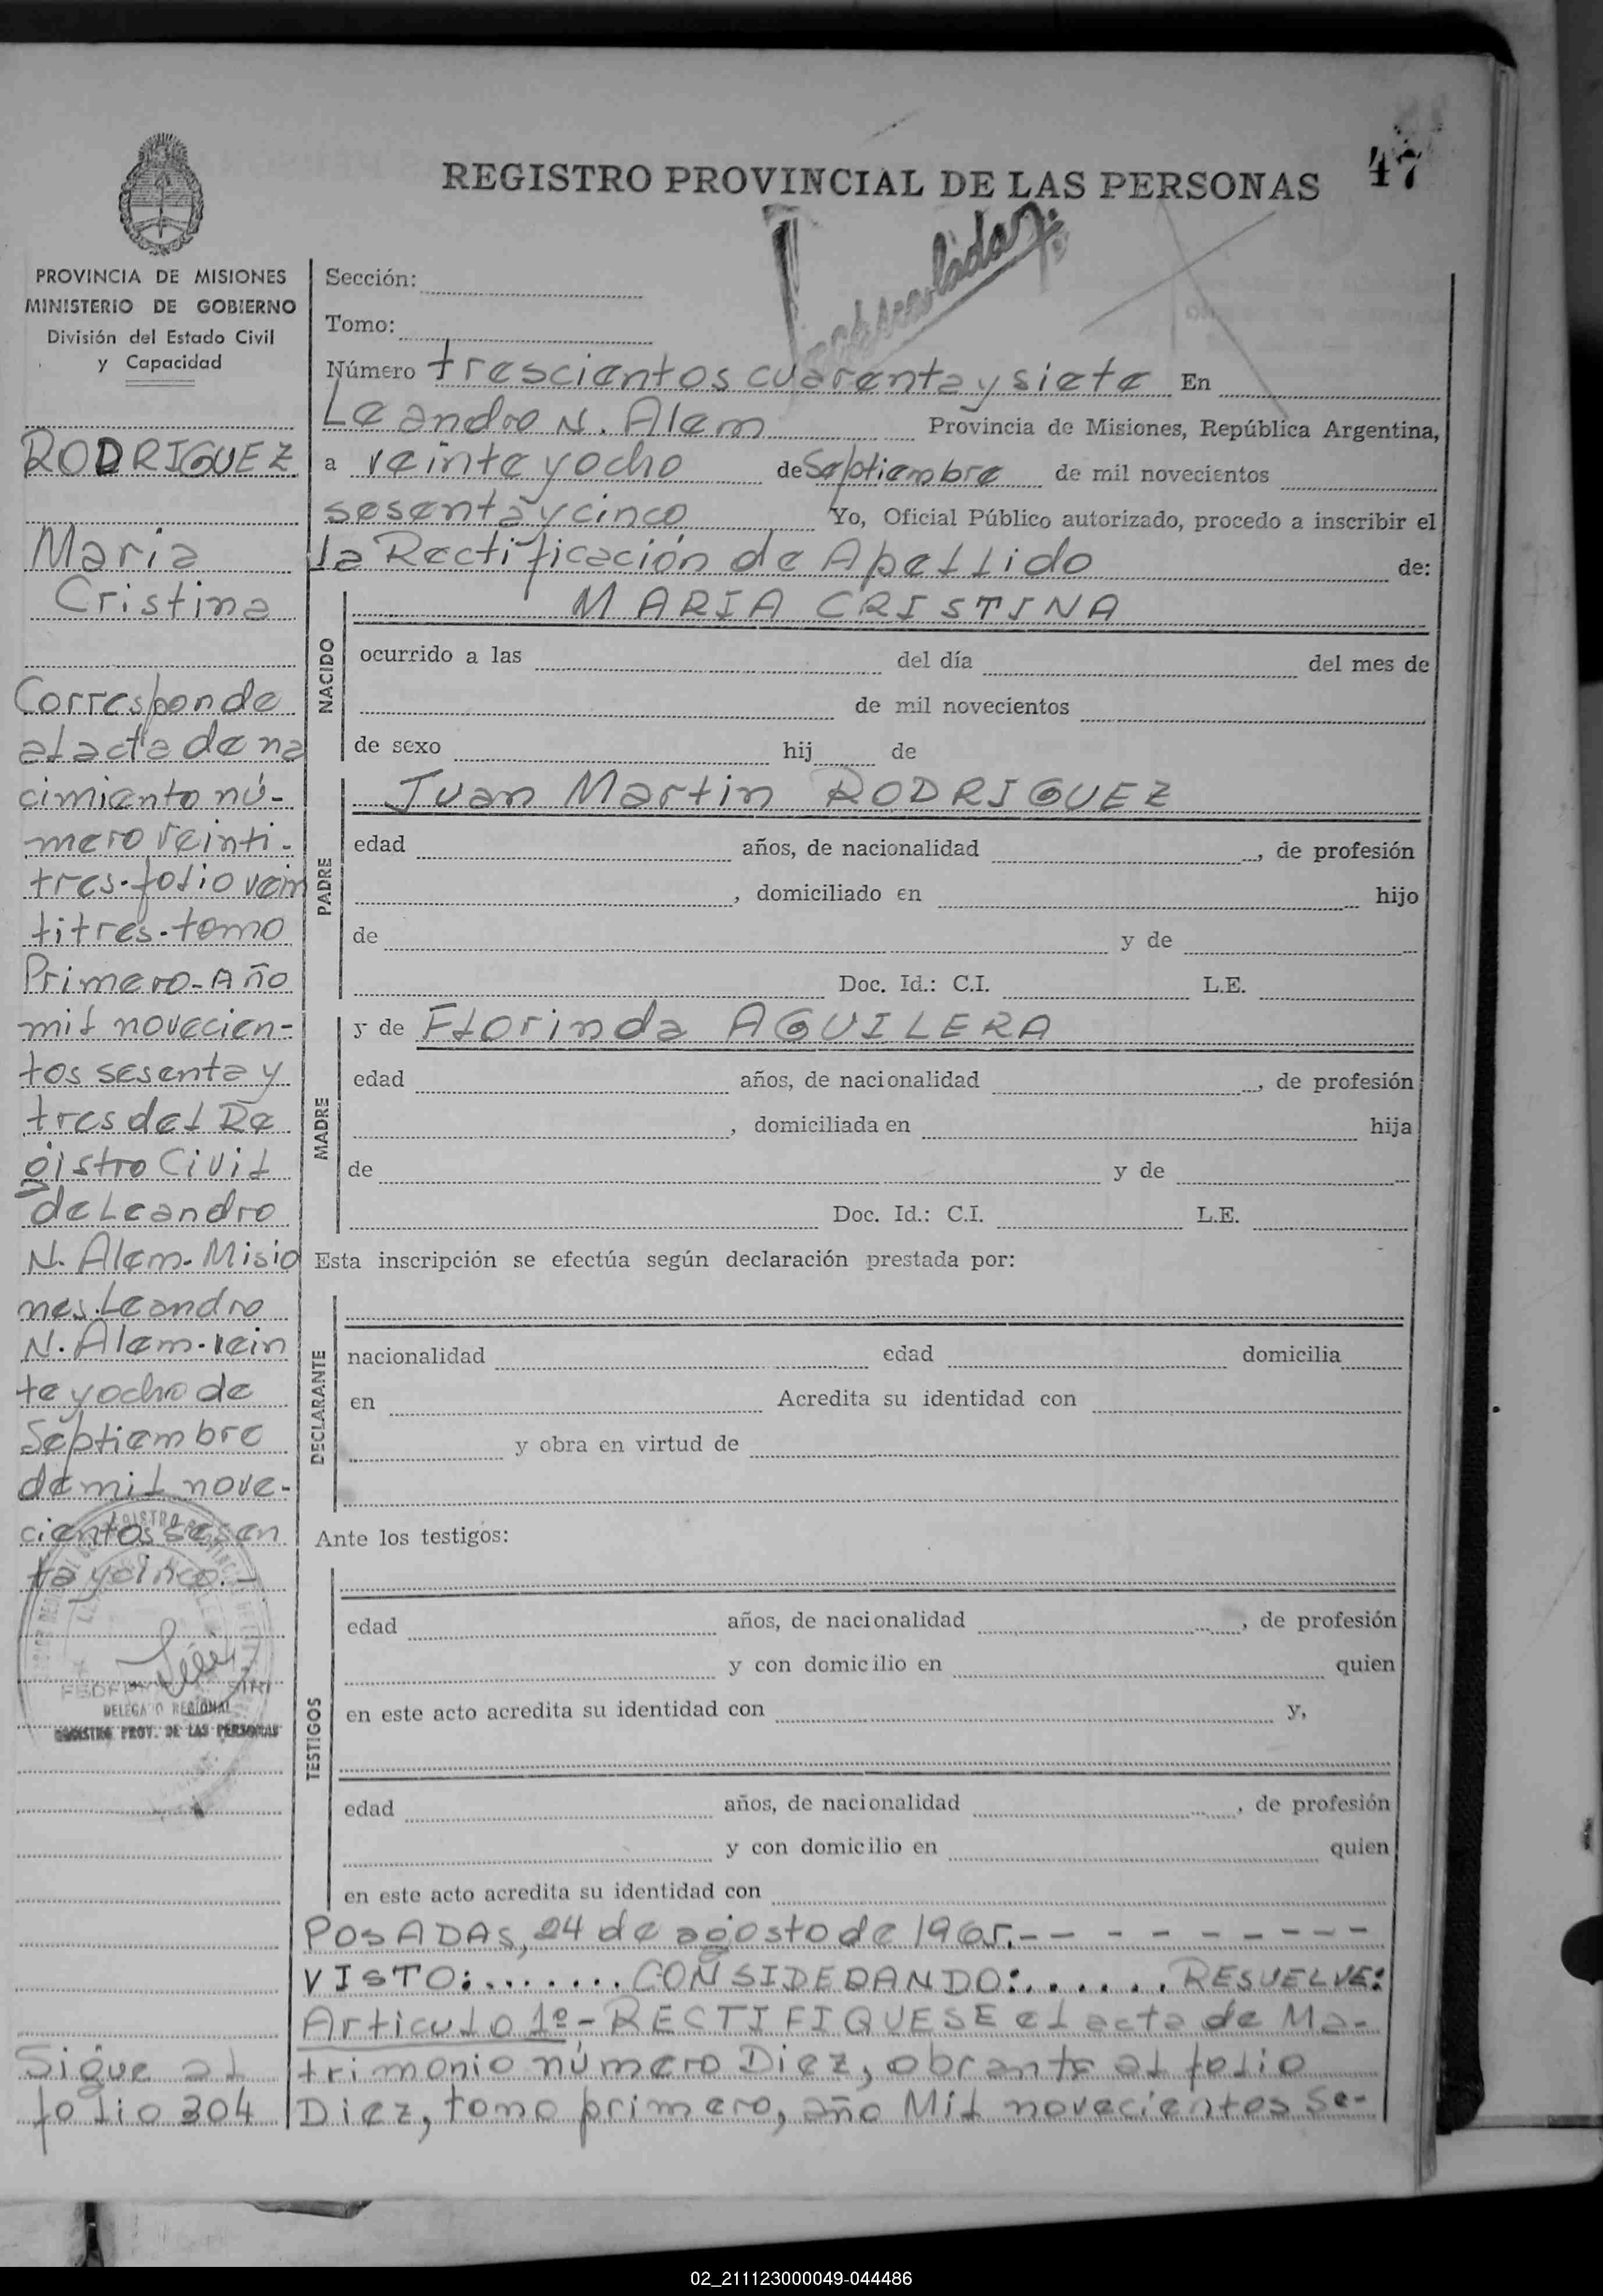 47
REGISTRO PROVINCIAL DE LAS PERSONAS
PROVINCIA DE MISIONES
MINISTERIO DE GOBIERNO
División del Estado Civil
y Capacidad
RODRIGUEZ
Maria
Cristina
Corresponde
al acta de na
cimiento nú-
mero veinti-
tres-folio vein
titres-tomo
Primero-Año
mil novecien-
tos sesenta y
tres del Re
gistro Civil
de Leandro
N. Alem-Misio
nes.Leandro
N. Alem-vein
te y ocho de
Septiembre
de mil nove-
cientos sesen
ta y cinco.-
DELEGADO REGIONAL
REGISTRO PROV. DE LAS PERSONAS
Sigue al
folio 304
Sección:
Tomo:
Número trescientos cuarenta y siete En
Leandro N. Alem Provincia de Misiones, República Argentina,
a veinte y ocho de Septiembre de mil novecientos
sesenta y cinco Yo, Oficial Público autorizado, procedo a inscribir el
la Rectificación de Apellido de:
NACIDO
MARIA CRISTINA
ocurrido a las del día del mes de
de mil novecientos
de sexo hij de
PADRE
Juan Martin RODRIGUEZ
edad años, de nacionalidad , de profesión
, domiciliado en hijo
de y de
Doc. Id.: C.I. L.E.
MADRE
y de Florinda AGUILERA
edad años, de nacionalidad , de profesión
, domiciliada en hija
de y de
Doc. Id.: C.I. L.E.
Esta inscripción se efectúa según declaración prestada por:
DECLARANTE
nacionalidad edad domicilia
en Acredita su identidad con
y obra en virtud de
Ante los testigos:
TESTIGOS
edad años, de nacionalidad , de profesión
y con domicilio en quien
en este acto acredita su identidad con y,
edad años, de nacionalidad , de profesión
y con domicilio en quien
en este acto acredita su identidad con
POSADAS, 24 de agosto de 1965.- - - - - - - - -
VISTO:....... CONSIDERANDO:...... RESUELVE:
Articulo 1º- RECTIFIQUESE el acta de Ma-
trimonio número Diez, obrante al folio
Diez, tomo primero, año Mil novecientos se-
02_211123000049-044486